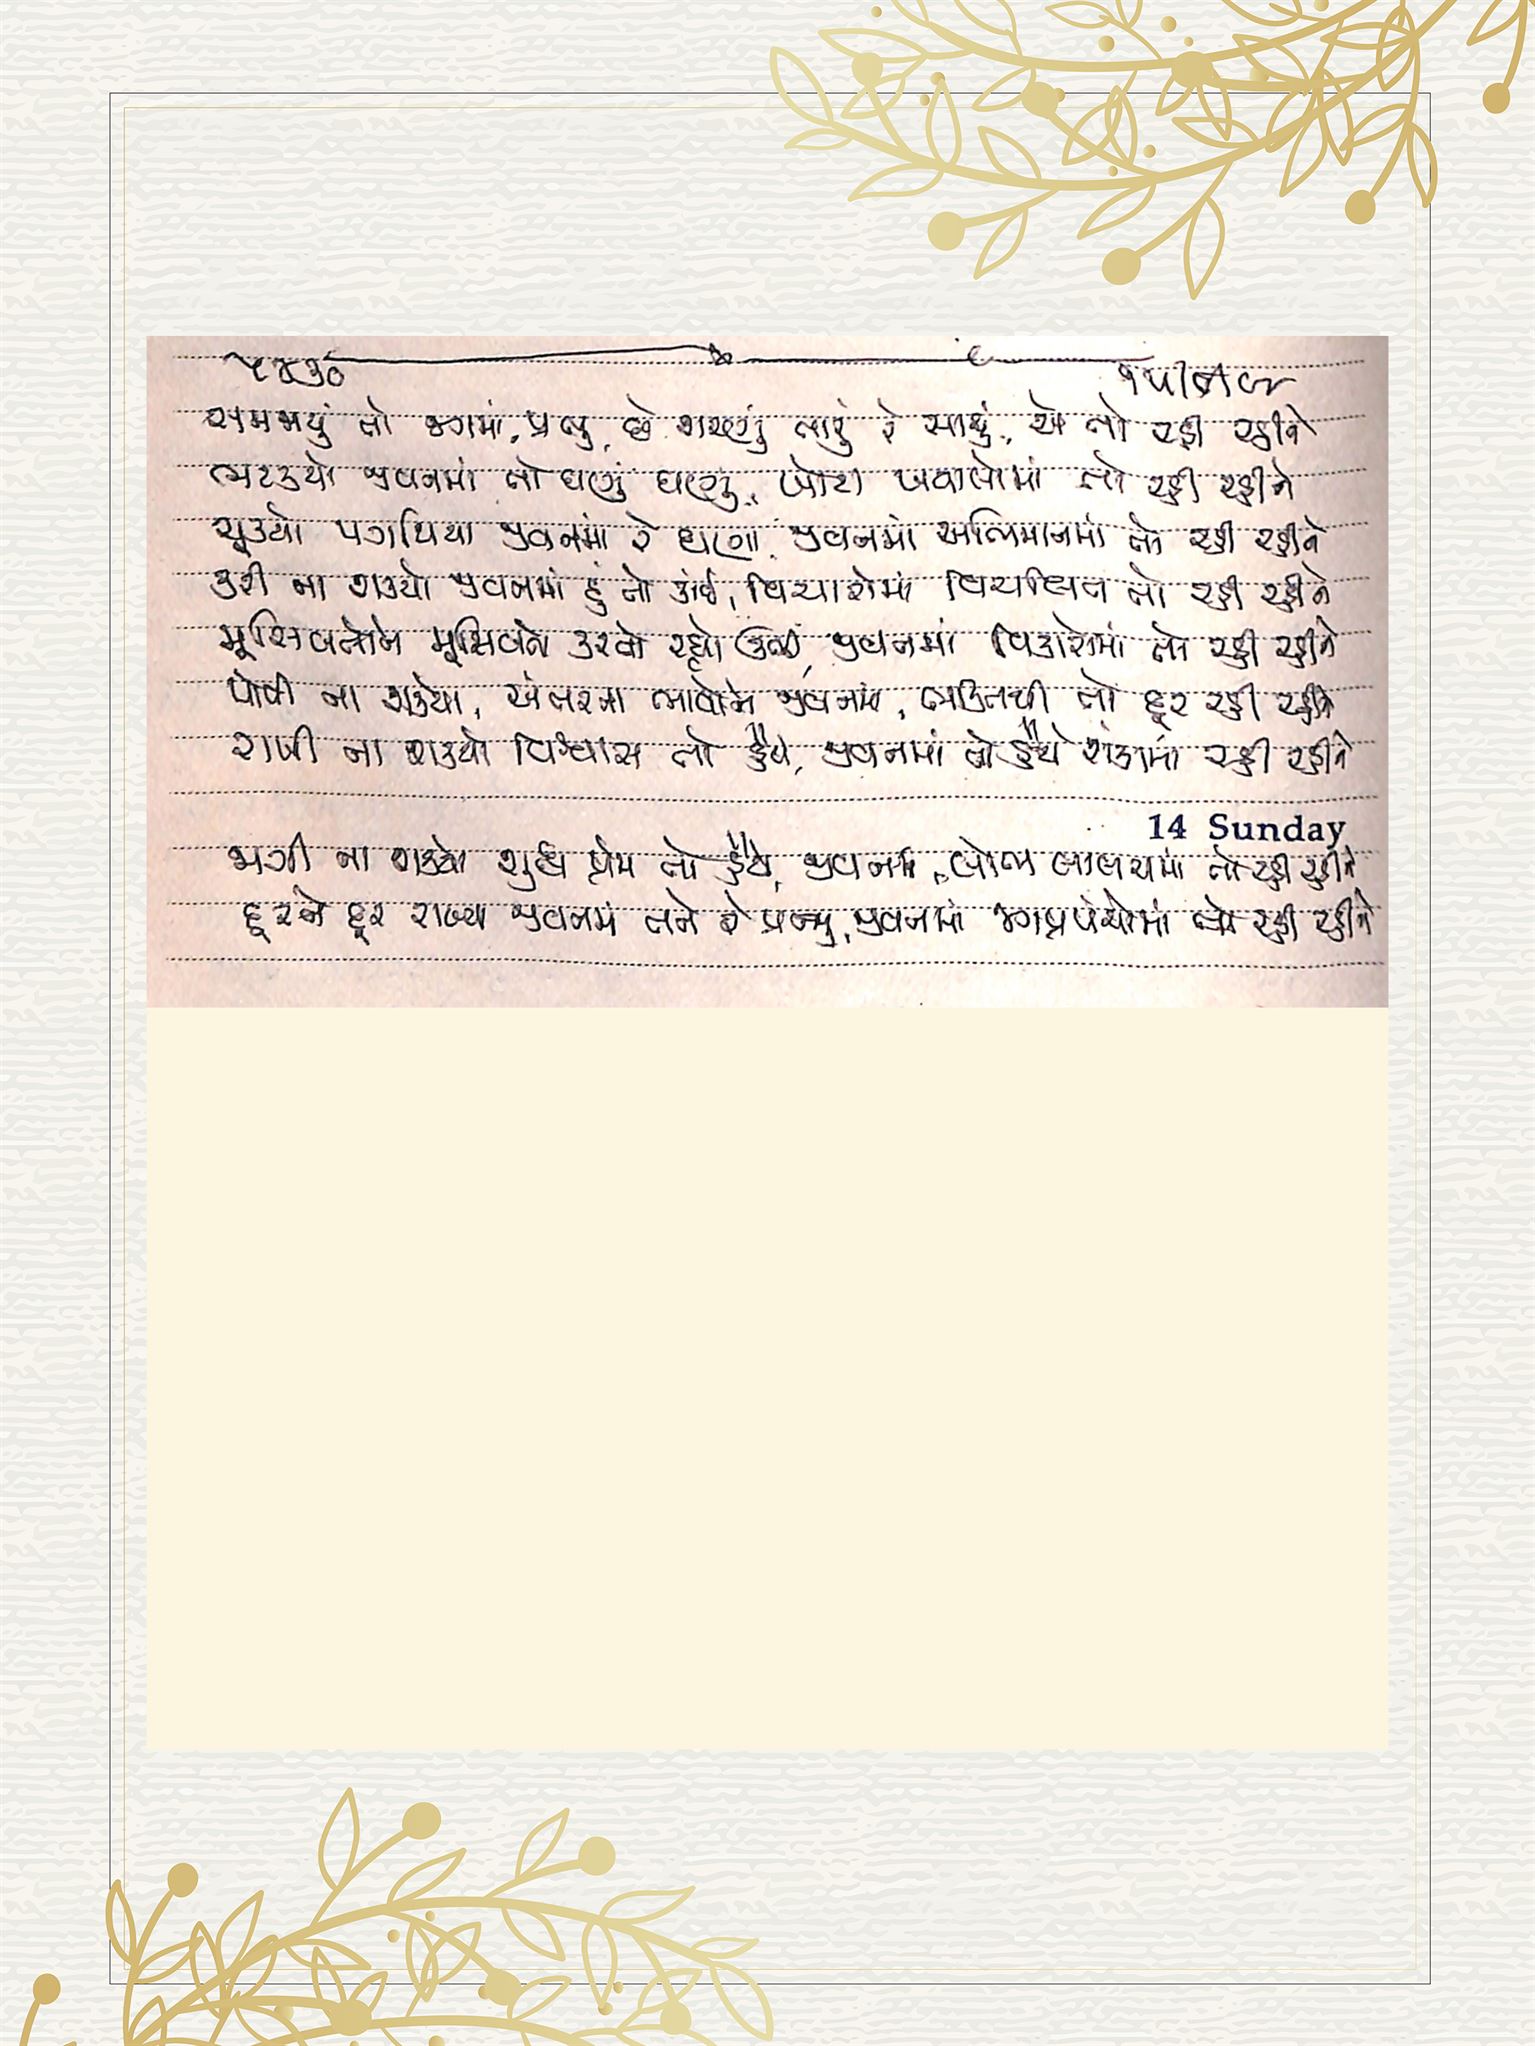 ૫૪૩૦ ૧૫/૭/૯૪
સમજાયું તો જગમાં, પ્રભુ, છે શરણું તારું રે સાચું, એ તો રહી રહીને
ભટક્યો જીવનમાં તો ઘણું ઘણું, ખોટા ખયાલોમાં તો રહી રહીને
ચૂક્યો પગથિયા જીવનમાં રે ઘણા, જીવનમાં અભિમાનમાં તો રહી રહીને
કરી ના શક્યો જીવનમાં હું તો કાંઈ, વિચારોમાં વિચલિત તો રહી રહીને
મૂસિબતોને મૂસિબતો કરતો રહ્યો ઊભી, જીવનમાં વિકારોમાં તો રહી રહીને
પોષી ના શક્યો, અંતરના ભાવોને જીવનમાં, ભક્તિથી તો દૂર રહી રહીને
રાખી ના શક્યો વિશ્વાસ તો હૈયે, જીવનમાં તો હૈયે શંકામાં રહી રહીને
14 Sunday
જગી ના શક્યો શુદ્ધ પ્રેમ તો હૈયે, જીવનમાં, લોભ લાલચમાં તો રહી રહીને
દૂરને દૂર રાખ્યા જીવનમાં તને રે પ્રભુ, જીવનમાં જગપ્રપંચોમાં તો રહી રહીને